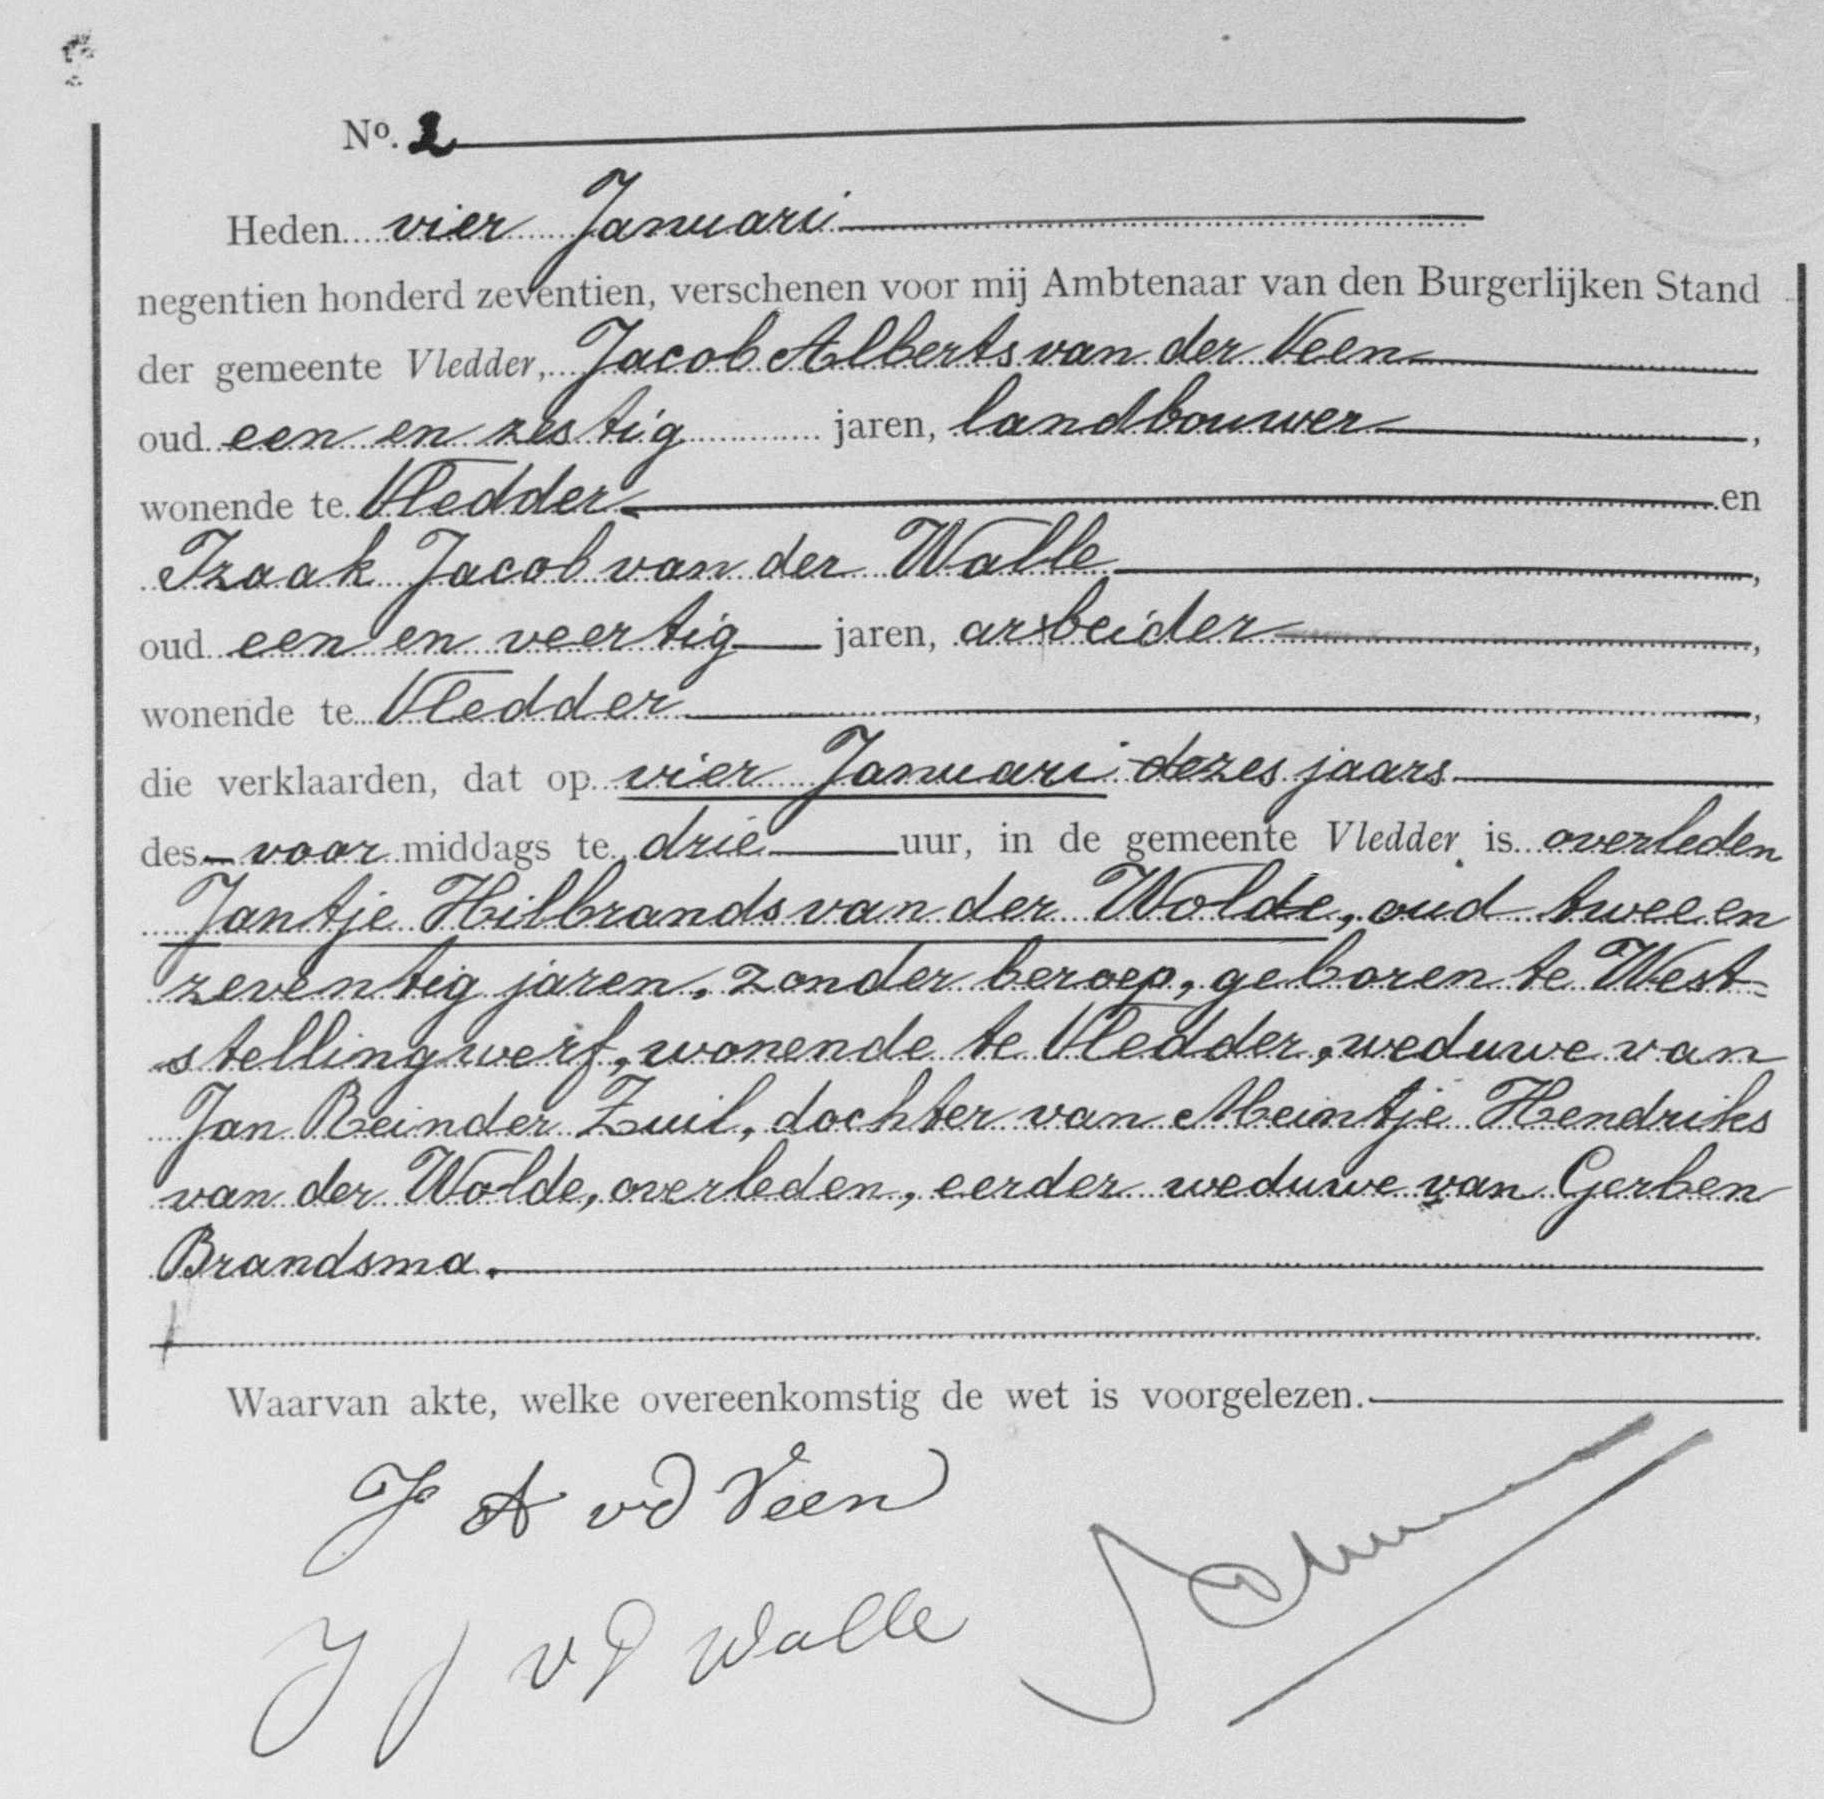 Nº. 2
Heden vier Januari
negentien honderd zeventien, verschenen voor mij Ambtenaar van den Burgerlijken Stand
der gemeente Vledder, Jacob Alberts van der Veen
oud een en zestig jaren, landbouwer,
wonende te Vledder en
Izaak Jacob van der Walle,
oud een en veertig jaren, arbeider,
wonende te Vledder,
die verklaarden, dat op vier Januari dezes jaars
des voor middags te drie uur, in de gemeente Vledder is overleden
Jantje Hilbrands van der Wolde, oud twee en
zeventig jaren, zonder beroep, geboren te West=
stellingwerf, wonende te Vledder, weduwe van
Jan Reinder Zuil, dochter van Meintje Hendriks
van der Wolde, overleden, eerder weduwe van Gerben
Brandsma.
Waarvan akte, welke overeenkomstig de wet is voorgelezen.
J A vd Veen
J J vd Walle